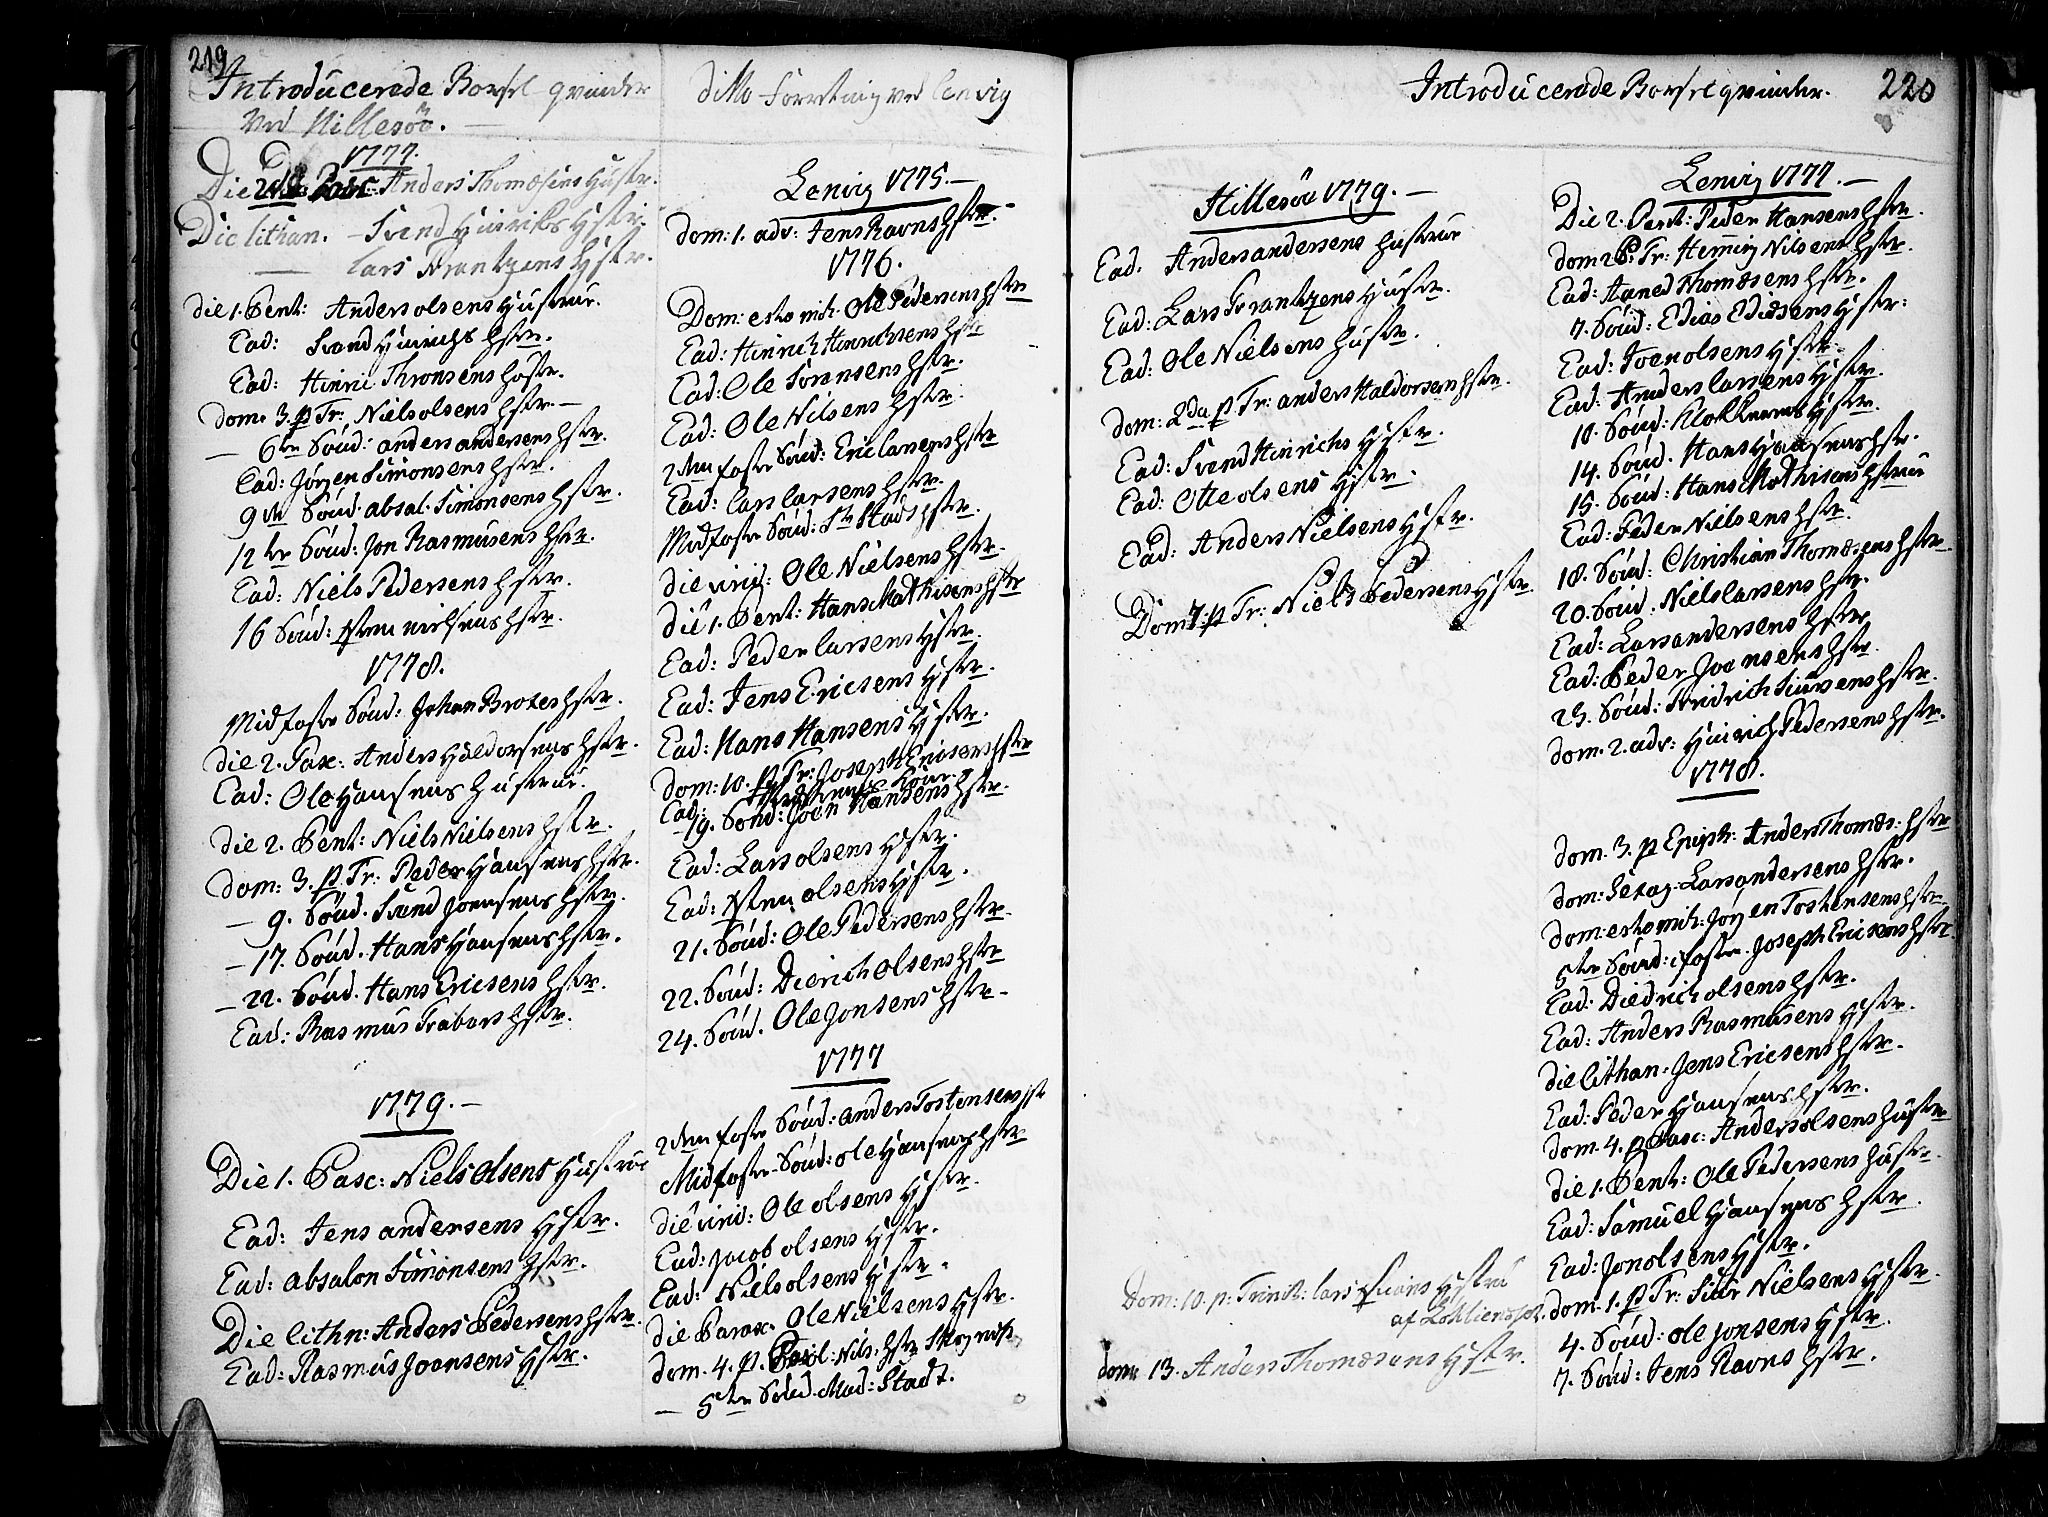 219
Introducerede Barsel-qvinder
Ved Hillesöe.
1777.
Die 2da Pasc: Anders Thomæsens Hustr.
Die lithan. - Svend Hinrichs Hstr:
— Lars Frantzens Hstr.
Die 1. Pent: Anders olsens Hustrue.
Ead: Svend Hinrichs Hstr.
Ead: Hinric Thronsens Hustr.
Dom. 3. p Tr: Niels olsens Hstr. —
— 6te Sönd: anders andersens Hstr.
Ead: Jörgen Simonsens Hstr.
9de Sönd. absal. Simonsens Hstr.
12te Sönd: Jon Rasmusens Hstr.
Ead: Niels Pedersens Hstr.
16 Sönd: Sten nielsens Hstr.
1778.
Midfaste Sönd: Johan Brotes Hstr.
Die 2. Pasc: Anders Haldorsens Hstr.
Ead: Ole Hansens Hustrue.
Die 2. Pent: Niels Nielsens Hstr.
Dom: 3. p. Tr: Peder Hansens Hstr.
— 9. Sönd. Svend Joensens Hstr.
— 17. Sönd. Hans Hansens Hstr.
— 22. Sönd. Hans Ericsens Hstr.
Ead: Rasmus Trabers Hstr.
1779. —
Die 1. Pasc: Niels Olsens Hustrue
Ead: Jens andersens Hstr.
Ead: absalon Simonsens Hstr.
Die lithn: Anders Pedersens Hstr.
Ead: Rasmus Joensens Hstr.
ditto Forretning ved Lenvig
Lenvig 1775. —
Dom: 1. adv: Jens Ravns Hstr.
1776.
Dom: esto mih: Ole Pedersens Hstr
Ead: Hinrich Hinrichsens Hstr
Ead: Ole Sörensens Hstr.
Ead: Ole Nilsens Hstr.
2den faste Sönd: Eric Larsens Hstr
Ead: Lars Larsens Hstr.
Midfaste Sönd: Sr Stads Hstr.
Die virid: Ole Nielsens Hstr.
Die 1. Pent: Hans Mathisens Hstr
Ead: Peder Larsens Hstr.
Ead: Jens Ericsens Hstr.
Ead: Hans Hansens Hstr.
Dom: 10. p Tr: Joseph Ericsens Hstr
Ead:
19. Sönd: Joen Hansens Hstr.
Ead: Lars olsens Hstr.
Ead: Sten olsens Hstr.
21. Sönd: Ole Pedersens Hstr.
22. Sönd: Dierich Olsens Hstr
24. Sönd. Ole Jonsens Hstr.
1777
2den faste Sönd: Anders Tostensens Hst
Midfaste-Sönd: Ole Hansens Hstr
Die virid: Ole olsens Hstr.
Ead: Jacob olsens Hstr.
Ead: Niels olsens Hstr.
Die Parasc. Ole Nielsens Hstr.
Dom. 4. p. Pasc: Nils: Hstr
— 5te Sönd. Mad: Stadt.
Introducerede Barselqvinder. 220
Hillesöe 1779. —
Ead. Anders andersens Hustrue
Ead: Lars Frantzens Hustr.
Ead: Ole Nielsens Hustr.
Dom: 2da p. Tr: anders Haldorsens Hstr.
Ead: Svend Hinrichs Hstr.
Ead: Otte olsens Hstr.
Ead: Anders Nielsens Hstr.
Dom 7. p Tr: Niels Pedersens Hstr
Dom: 10. p: Trinit: Lars Hustru
af
dom: 13. Anders Thomæsens Hstr.
Lenvig 1777. —
Die 2. Pent: Peder Hansens Hstr.
Dom 2. P. Tr: Hemig Nilsens Hstr.
Ead: Thomæsens Hstr.
7. Sönd: Edias Ediæsens Hstr:
Ead: Joen olsens Hstr.
Ead: Anders Larsens Hstr.
10. Sönd: Klokkerens Hstr.
14. Sönd. Hans Hansens Hstr.
15. Sönd: Hans Mathisens Hstrue
Ead: Peder Nielsens Hstr.
18. Sönd: Christian Thomæsens Hstr.
20. Sönd. Niels Larsens Hstr.
Ead: Lars andersens Hstr
Ead: Peder Joensens Hstr.
23. Sönd: Fridrich Siursens Hstr.
Dom. 2. adv: Hinrich Pedersens Hstr.
1778.
Dom. 3. p Epiph: Anders Thomæs: Hstr
Dom: Sexag. Lars andersens Hstr.
Dom: esto mih: Jörgen Tostensens Hstr
5te Sönd: i faste. Joseph Ericsens Hstr.
Ead: Diedrich olsens Hstr.
Ead: Anders Rasmusens Hstr.
Die lithan. Jens Ericsens Hstr.
Ead: Peder Hansens Hstr.
Dom. 4. p Pasc: Anders olsens Hustr
Die 1. Pent: Ole Pedersens Hustr.
Ead: Samuel Hansens Hstr.
Ead: Jon olsens Hstr.
Dom. 1. p Tr: Siur Nielsens Hstr.
4. Sönd: ole Jonsens Hstr.
7. Sönd: Jens Ravns Hstr.